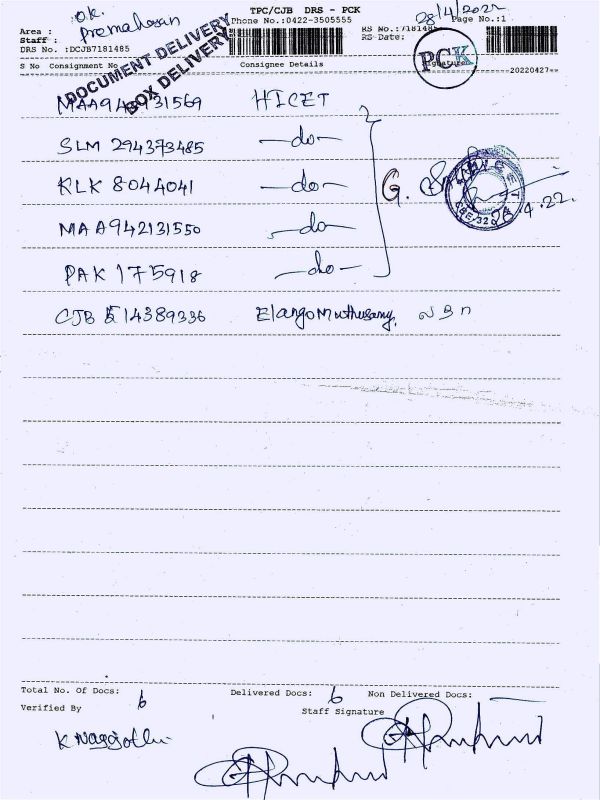 O.K. TPC/CJB DRS - PCK 28/4/2022
Area : Premahasan Phone No.:0422-3505555 Page No.:1
Staff : RS No.:7181485
DRS No. :DCJB7181485 RS-Date:
DOCUMENT DELIVERY
BOX DELIVERY
PCK
S No Consignment No Consignee Details Signature
20220427
MAA942131569 HICET
SLM 294373485 -do-
KLK 8044041 -do-
MAA942131550 -do-
PAK 175918 -do-
G.
.4.22.
CJB 514389336 Elango Muthusamy,
Total No. Of Docs: 6 Delivered Docs: 6 Non Delivered Docs:
Verified By Staff Signature